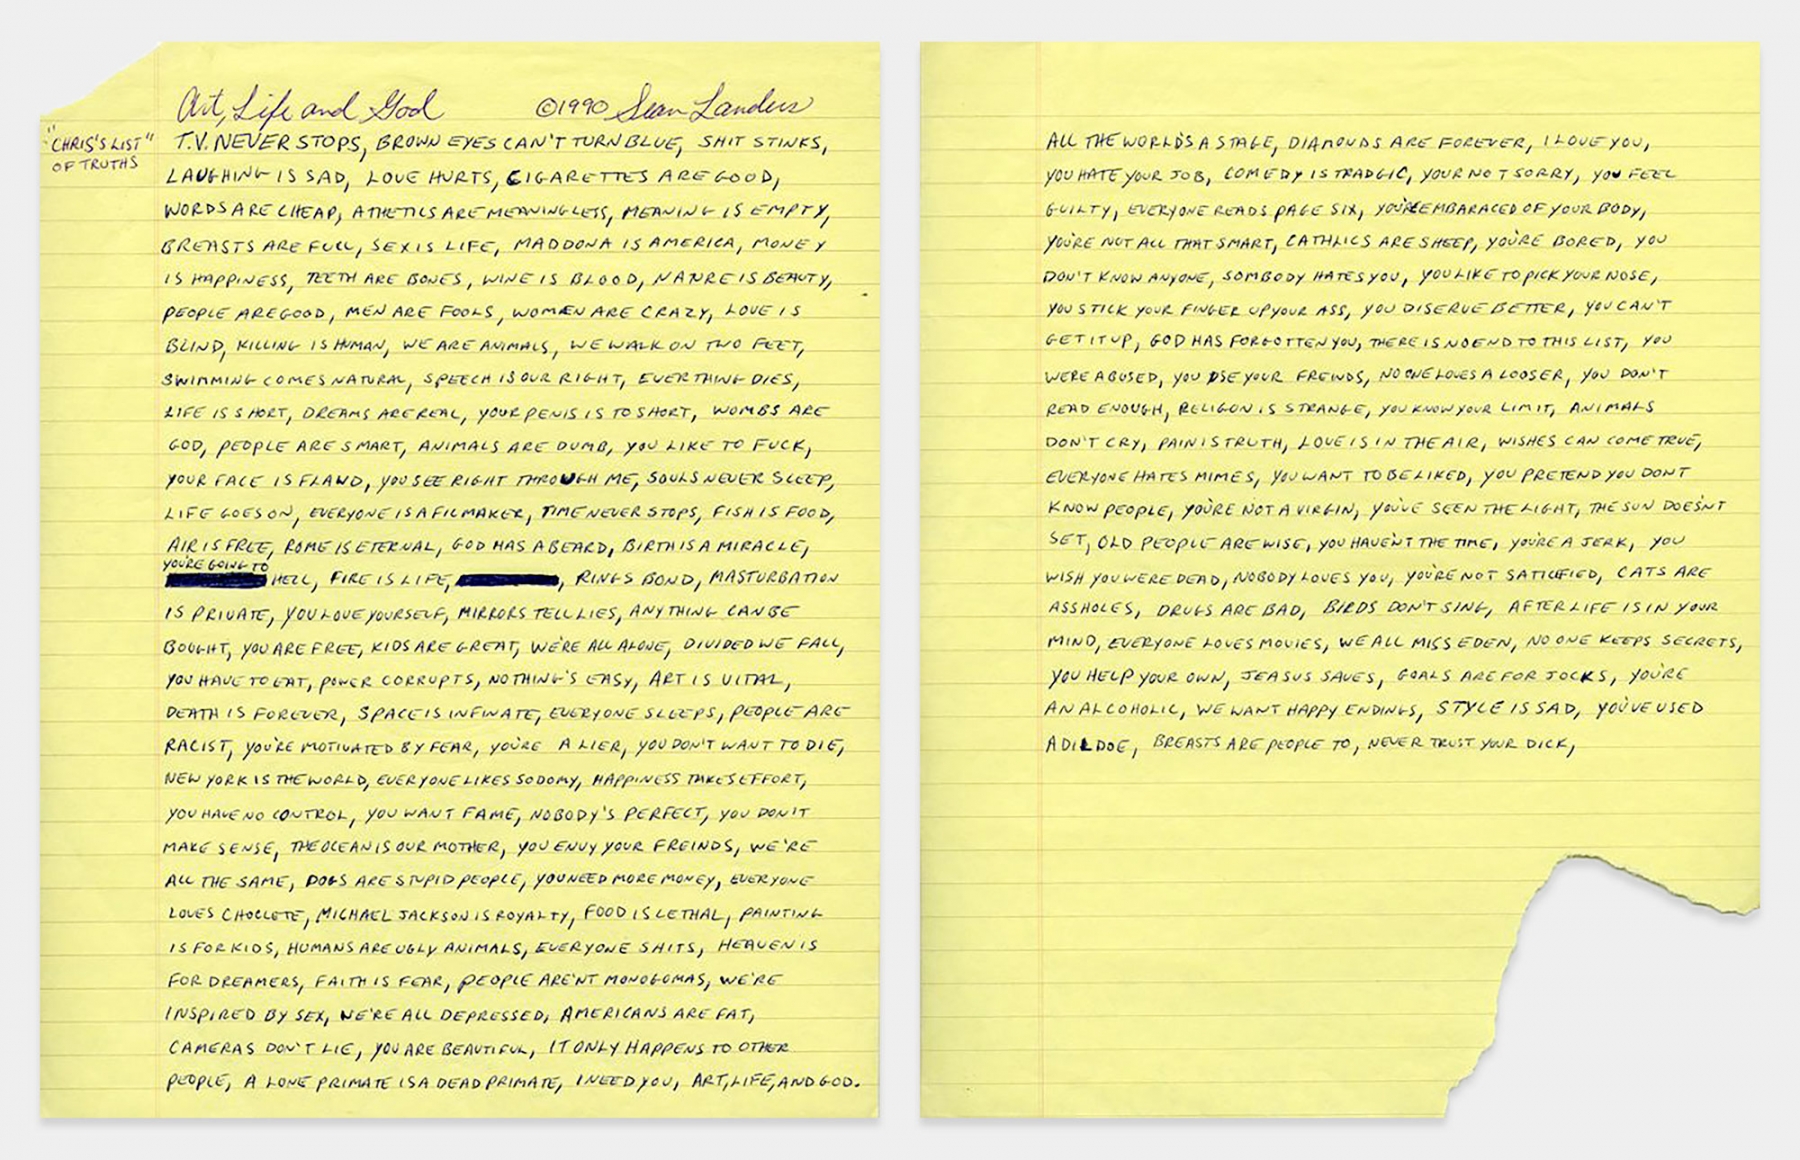 Art, Life and God ©1990 Sean Landers
"CHRIS'S LIST"
OF TRUTHS
T.V. NEVER STOPS, BROWN EYES CAN'T TURN BLUE, SHIT STINKS,
LAUGHING IS SAD, LOVE HURTS, CIGARETTES ARE GOOD,
WORDS ARE CHEAP, ATHETICS ARE MEANINGLESS, MEANING IS EMPTY,
BREASTS ARE FULL, SEX IS LIFE, MADDONA IS AMERICA, MONEY
IS HAPPINESS, TEETH ARE BONES, WINE IS BLOOD, NATRE IS BEAUTY,
PEOPLE ARE GOOD, MEN ARE FOOLS, WOMEN ARE CRAZY, LOVE IS
BLIND, KILLING IS HUMAN, WE ARE ANIMALS, WE WALK ON TWO FEET,
SWIMMING COMES NATURAL, SPEECH IS OUR RIGHT, EVERTHING DIES,
LIFE IS SHORT, DREAMS ARE REAL, YOUR PENIS IS TO SHORT, WOMBS ARE
GOD, PEOPLE ARE SMART, ANIMALS ARE DUMB, YOU LIKE TO FUCK,
YOUR FACE IS FLAWD, YOU SEE RIGHT THROUGH ME, SOULS NEVER SLEEP,
LIFE GOES ON, EVERYONE IS A FILMAKER, TIME NEVER STOPS, FISH IS FOOD,
AIR IS FREE, ROME IS ETERNAL, GOD HAS A BEARD, BIRTH IS A MIRACLE,
YOU'RE GOING TO
HELL, FIRE IS LIFE, , RINGS BOND, MASTURBATION
IS PRIVATE, YOU LOVE YOURSELF, MIRRORS TELL LIES, ANYTHING CAN BE
BOUGHT, YOU ARE FREE, KIDS ARE GREAT, WE'RE ALL ALONE, DIVIDED WE FALL,
YOU HAVE TO EAT, POWER CORRUPTS, NOTHING'S EASY, ART IS VITAL,
DEATH IS FOREVER, SPACE IS INFINATE, EVERYONE SLEEPS, PEOPLE ARE
RACIST, YOU'RE MOTIVATED BY FEAR, YOU'RE A LIER, YOU DON'T WANT TO DIE,
NEW YORK IS THE WORLD, EVERYONE LIKES SODOMY, HAPPINESS TAKES EFFORT,
YOU HAVE NO CONTROL, YOU WANT FAME, NOBODY'S PERFECT, YOU DON'T
MAKE SENSE, THE OCEAN IS OUR MOTHER, YOU ENVY YOUR FREINDS, WE'RE
ALL THE SAME, DOGS ARE STUPID PEOPLE, YOU NEED MORE MONEY, EVERYONE
LOVES CHOCLETE, MICHAEL JACKSON IS ROYALTY, FOOD IS LETHAL, PAINTING
IS FOR KIDS, HUMANS ARE UGLY ANIMALS, EVERYONE SHITS, HEAVEN IS
FOR DREAMERS, FAITH IS FEAR, PEOPLE ARE'NT MONOGOMAS, WE'RE
INSPIRED BY SEX, WE'RE ALL DEPRESSED, AMERICANS ARE FAT,
CAMERAS DON'T LIE, YOU ARE BEAUTIFUL, IT ONLY HAPPENS TO OTHER
PEOPLE, A LONE PRIMATE IS A DEAD PRIMATE, I NEED YOU, ART, LIFE, AND GOD.
ALL THE WORLD'S A STAGE, DIAMONDS ARE FOREVER, I LOVE YOU,
YOU HATE YOUR JOB, COMEDY IS TRADGIC, YOUR NOT SORRY, YOU FEEL
GUILTY, EVERYONE READS PAGE SIX, YOU'RE EMBARACED OF YOUR BODY,
YOU'RE NOT ALL THAT SMART, CATHLICS ARE SHEEP, YOU'RE BORED, YOU
DON'T KNOW ANYONE, SOMBODY HATES YOU, YOU LIKE TO PICK YOUR NOSE,
YOU STICK YOUR FINGER UP YOUR ASS, YOU DISERVE BETTER, YOU CAN'T
GET IT UP, GOD HAS FORGOTTEN YOU, THERE IS NO END TO THIS LIST, YOU
WERE ABUSED, YOU USE YOUR FREINDS, NO ONE LOVES A LOOSER, YOU DON'T
READ ENOUGH, RELIGON IS STRANGE, YOU KNOW YOUR LIMIT, ANIMALS
DON'T CRY, PAIN IS TRUTH, LOVE IS IN THE AIR, WISHES CAN COME TRUE,
EVERYONE HATES MIMES, YOU WANT TO BE LIKED, YOU PRETEND YOU DON'T
KNOW PEOPLE, YOU'RE NOT A VIRGIN, YOU'VE SEEN THE LIGHT, THE SUN DOES'NT
SET, OLD PEOPLE ARE WISE, YOU HAVEN'T THE TIME, YOU'RE A JERK, YOU
WISH YOU WERE DEAD, NOBODY LOVES YOU, YOU'RE NOT SATICFIED, CATS ARE
ASSHOLES, DRUGS ARE BAD, BIRDS DON'T SING, AFTER LIFE IS IN YOUR
MIND, EVERYONE LOVES MOVIES, WE ALL MISS EDEN, NO ONE KEEPS SECRETS,
YOU HELP YOUR OWN, JEASUS SAVES, GOALS ARE FOR JOCKS, YOU'RE
AN ALCOHOLIC, WE WANT HAPPY ENDINGS, STYLE IS SAD, YOU'VE USED
A DILDOE, BREASTS ARE PEOPLE TO, NEVER TRUST YOUR DICK,